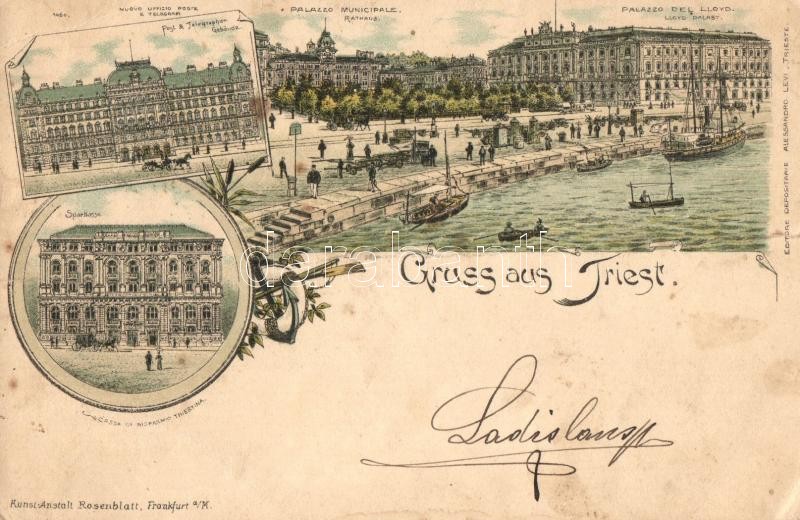 1460.
NUOVO UFFIZIO POSTE
E TELEGRAFI
Post & Telegraphen
Gebäude
PALAZZO MUNICIPALE.
RATHAUS.
PALAZZO DEL LLOYD.
LLOYD PALAST.
EDITORE DEPOSITARIE ALESSANDRO LEVI - TRIESTE
Sparkasse
CASSA DI RISPARMIO TRIESTINA.
darabanth.com
Gruss aus Triest.
Ladislaus
Kunst-Anstalt Rosenblatt, Frankfurt a/M.